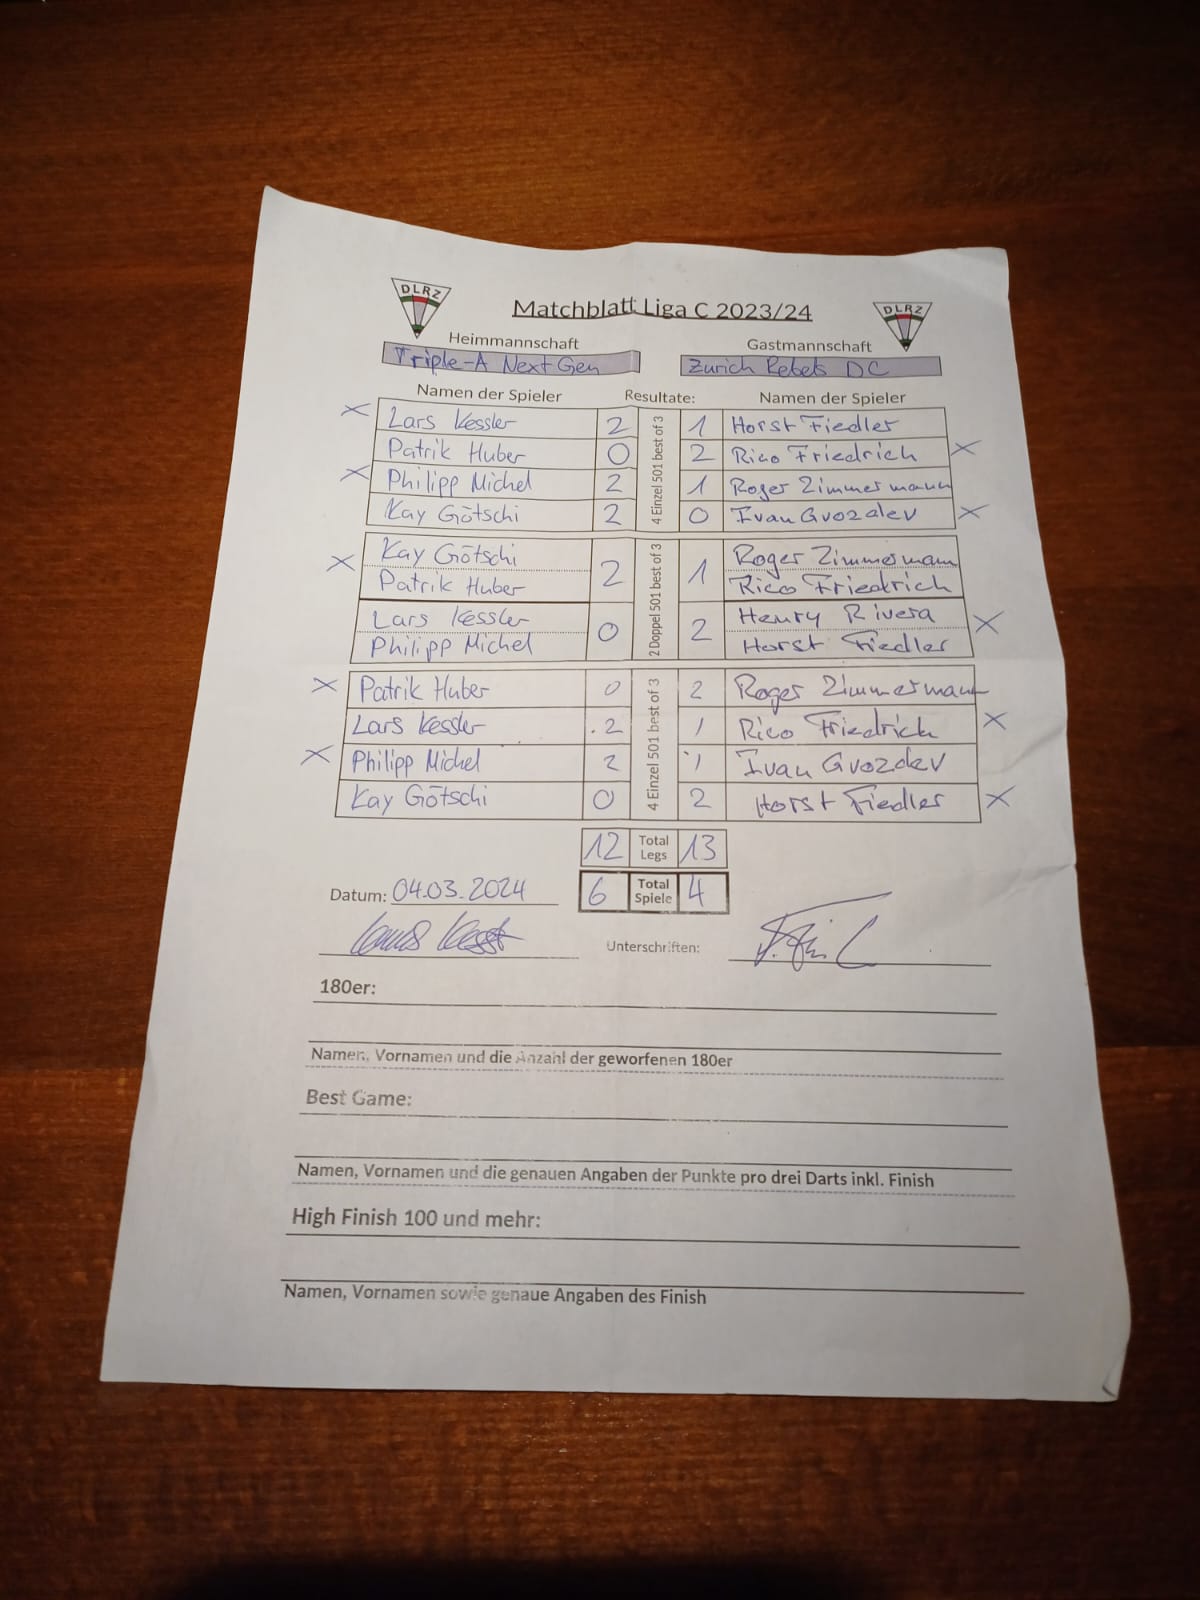 DLRZ
Matchblatt Liga C 2023/24
DLRZ
Heimmannschaft Gastmannschaft
Triple-A Next Gen Zurich Rebels DC
Namen der Spieler Resultate: Namen der Spieler
X Lars Kessler 2 1 Horst Fiedler
Patrik Huber 0 2 Rico Friedrich X
X Philipp Michel 2 1 Roger Zimmermann
Kay Götschi 2 0 Ivan Gvozdev X
4 Einzel 501 best of 3
X Kay Götschi 2 1 Roger Zimmermann
Patrik Huber Rico Friedrich
Lars Kessler 0 2 Henry Rivera X
Philipp Michel Horst Fiedler
2 Doppel 501 best of 3
X Patrik Huber 0 2 Roger Zimmermann
Lars Kessler 2 1 Rico Friedrich X
X Philipp Michel 2 1 Ivan Gvozdev
Kay Götschi 0 2 Horst Fiedler X
4 Einzel 501 best of 3
12 Total Legs 13
Datum: 04.03.2024 6 Total Spiele 4
Unterschriften:
180er:
Namen, Vornamen und die Anzahl der geworfenen 180er
Best Game:
Namen, Vornamen und die genauen Angaben der Punkte pro drei Darts inkl. Finish
High Finish 100 und mehr:
Namen, Vornamen sowie genaue Angaben des Finish